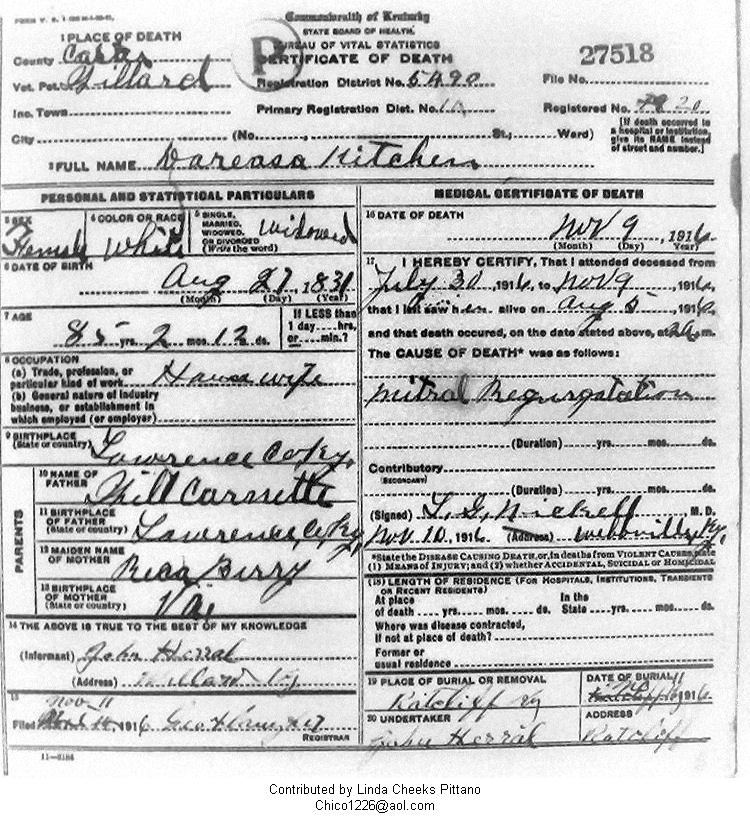 Commonwealth of Kentucky
STATE BOARD OF HEALTH
BUREAU OF VITAL STATISTICS
CERTIFICATE OF DEATH
P
1 PLACE OF DEATH
County Carter
Vot. Pct. Willard
Inc. Town
City
(No. St., Ward)
Registration District No. 5490
Primary Registration Dist. No.
27518
File No.
Registered No. 20
[If death occurred in a hospital or institution, give its NAME instead of street and number.]
2 FULL NAME Darcasa Kitchen
PERSONAL AND STATISTICAL PARTICULARS
3 SEX Female
4 COLOR OR RACE White
5 SINGLE, MARRIED, WIDOWED, OR DIVORCED (Write the word) Widowed
6 DATE OF BIRTH
Aug 27, 1831
(Month) (Day) (Year)
7 AGE
85 yrs. 2 mos. 12 ds.
If LESS than 1 day....hrs. or....min.?
8 OCCUPATION
(a) Trade, profession, or particular kind of work House wife
(b) General nature of industry business, or establishment in which employed (or employer)
9 BIRTHPLACE (State or country) Lawrence Co Ky.
PARENTS
10 NAME OF FATHER
11 BIRTHPLACE OF FATHER (State or country) Lawrence Co Ky.
12 MAIDEN NAME OF MOTHER Berry
13 BIRTHPLACE OF MOTHER (State or country) Va.
14 THE ABOVE IS TRUE TO THE BEST OF MY KNOWLEDGE
(Informant) John Herral
(Address) Willard Ky
15
Nov. 11
Filed 1916
REGISTRAR
11-3184
MEDICAL CERTIFICATE OF DEATH
16 DATE OF DEATH
Nov 9, 1916
(Month) (Day) (Year)
17 I HEREBY CERTIFY, That I attended deceased from
July 30, 1916, to Nov 9, 1916,
that I last saw her alive on Aug 5, 1916,
and that death occured, on the date stated above, at 2 a.m.
The CAUSE OF DEATH* was as follows:
Mitral Regurgatation
(Duration) yrs. mos. ds.
Contributory
(SECONDARY)
(Duration) yrs. mos. ds.
(Signed) L. G. Nickell M. D.
Nov. 10, 1916 (Address) Webbville, Ky.
*State the DISEASE CAUSING DEATH, or, in deaths from VIOLENT CAUSES, state
(1) MEANS OF INJURY; and (2) whether ACCIDENTAL, SUICIDAL or HOMICIDAL
(18) LENGTH OF RESIDENCE (FOR HOSPITALS, INSTITUTIONS, TRANSIENTS OR RECENT RESIDENTS)
At place of death yrs. mos. ds. In the State yrs. mos. ds.
Where was disease contracted, if not at place of death?
Former or usual residence
19 PLACE OF BURIAL OR REMOVAL
Ratcliff Ky
DATE OF BURIAL
11 1916
20 UNDERTAKER
John Herral
ADDRESS
Ratcliff
Contributed by Linda Cheeks Pittano
Chico1226@aol.com